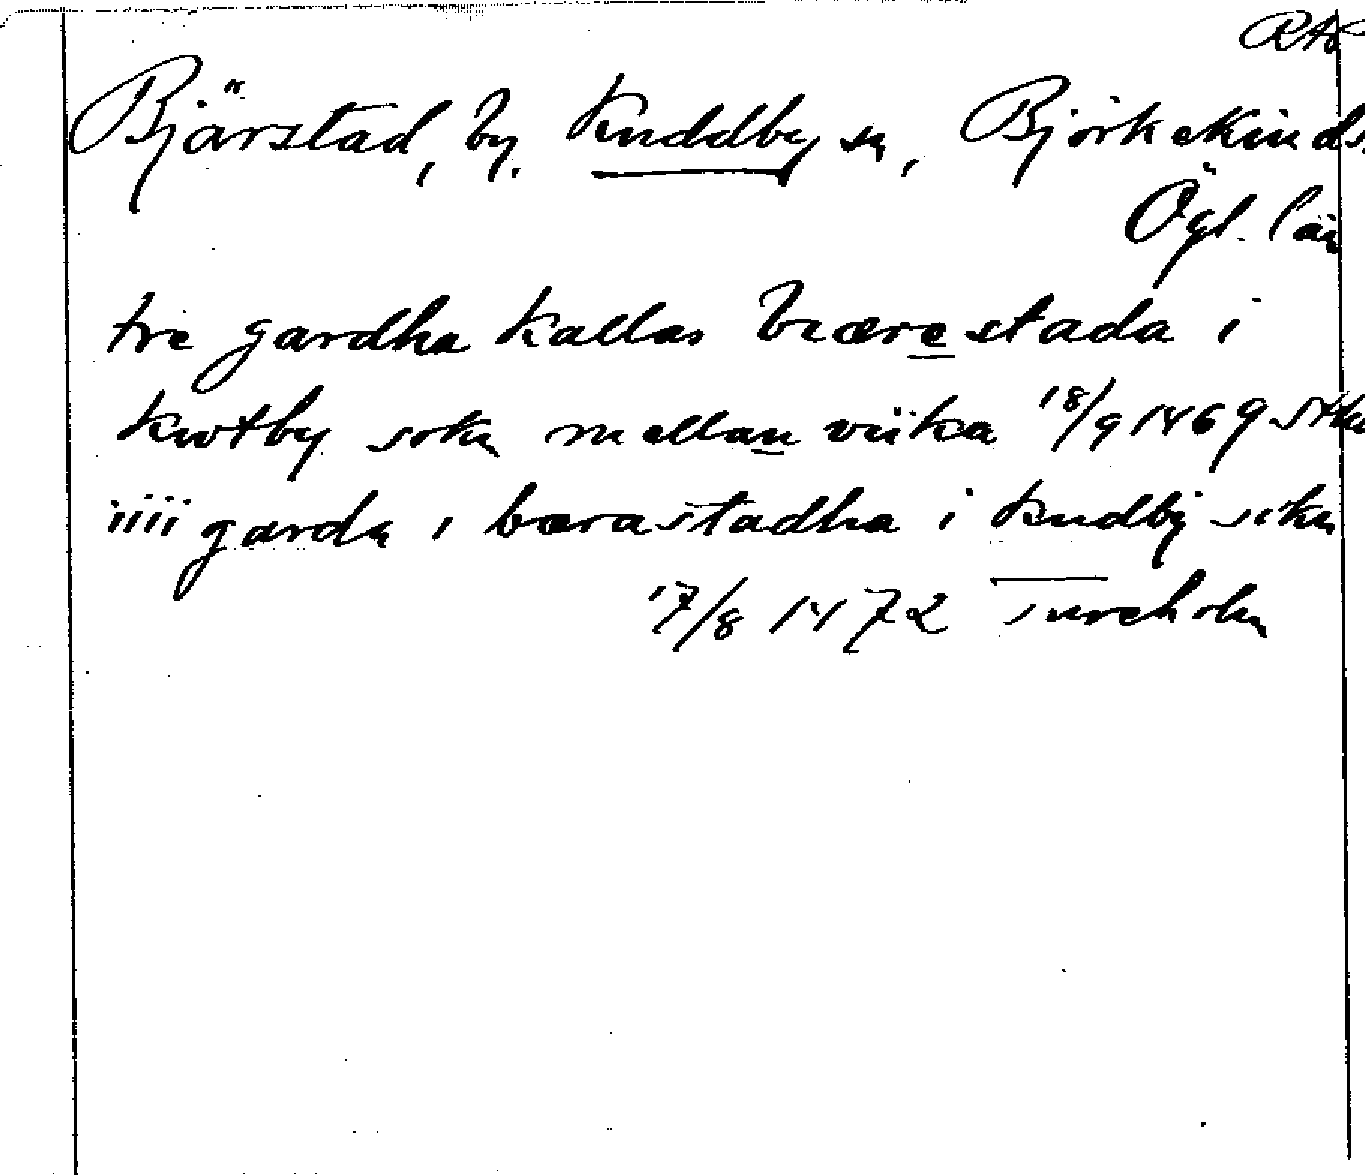 RAP
Bjärstad, by, Kuddby sn, Björkekinds
Ögl. län
tre gardha kallas biærestada i
kwtby sokn mellan viika 18/9 1469 Sthlm
iiii garda i bærastadha i kudby sokn
17/8 1472 Tureholm